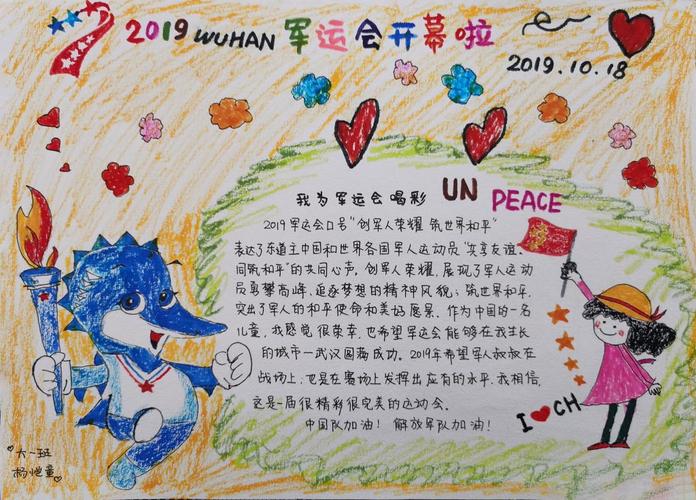 2019 WUHAN 军运会开幕啦
2019.10.18
我为军运会喝彩
UN PEACE
2019军运会口号“创军人荣耀 筑世界和平”
表达了东道主中国和世界各国军人运动员“共享友谊、
同筑和平”的共同心声。创军人荣耀,展现了军人运动
员勇攀高峰、追逐梦想的精神风貌;筑世界和平,
突出了军人的和平使命和美好愿景。作为中国的一名
儿童,我感觉很荣幸,也希望军运会能够在我生长
的城市—武汉圆满成功。2019年希望军人叔叔在
战场上,也是在赛场上发挥出应有的水平,我相信,
这是一届很精彩很完美的运动会。
中国队加油! 解放军队加油!
I CH
大一班
杨恺童